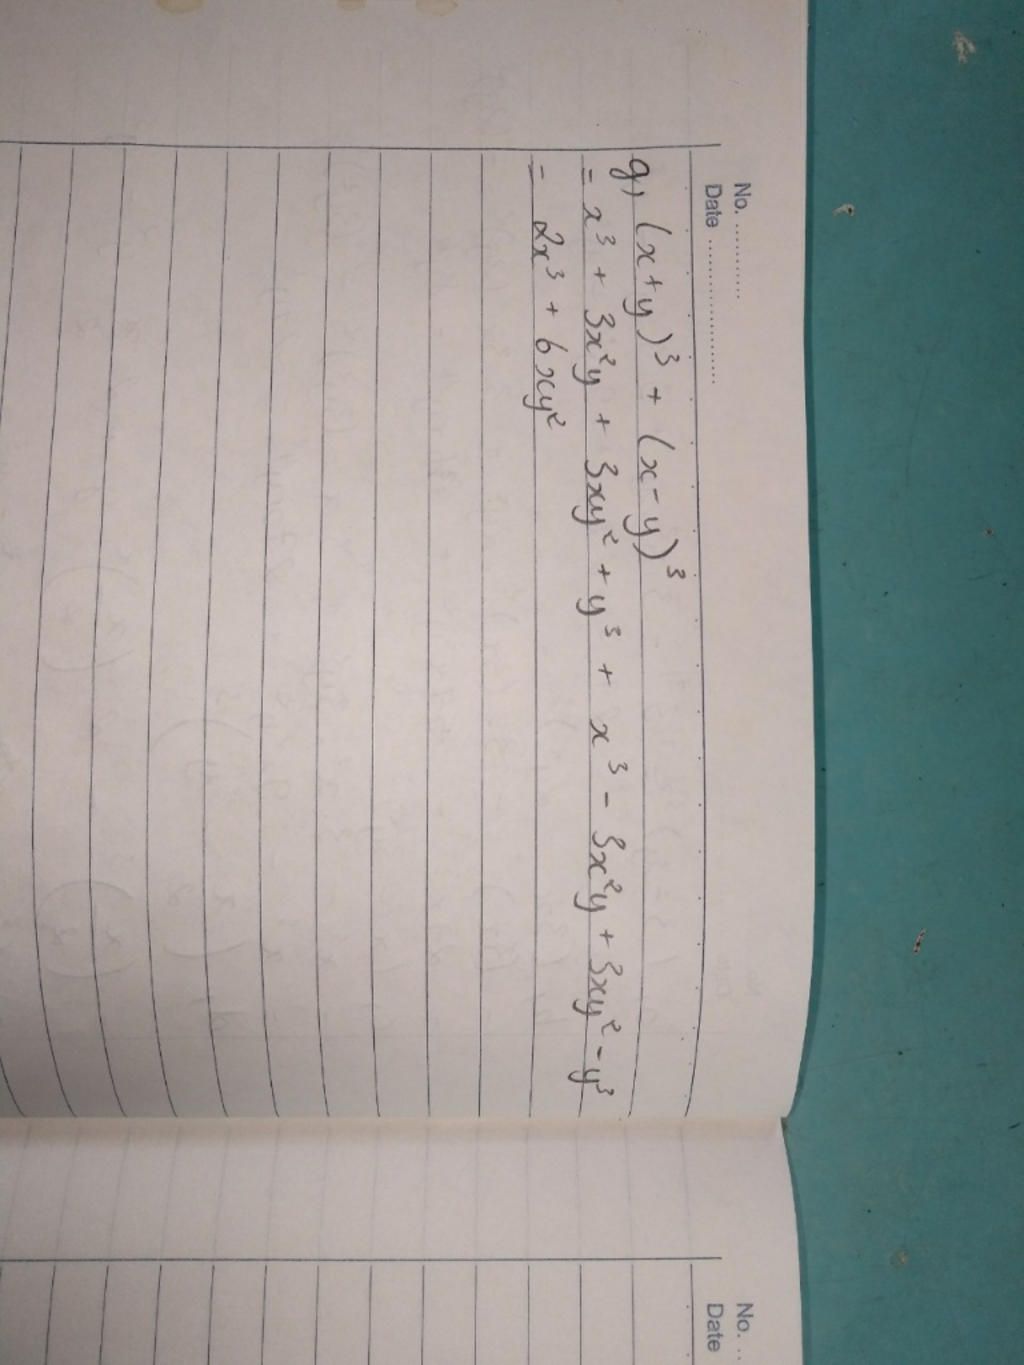 No. ...........
Date ......................
g) (x+y)³ + (x-y)³
= x³ + 3x²y + 3xy² + y³ + x³ - 3x²y + 3xy² - y³
= 2x³ + 6xy²
No. ..
Date